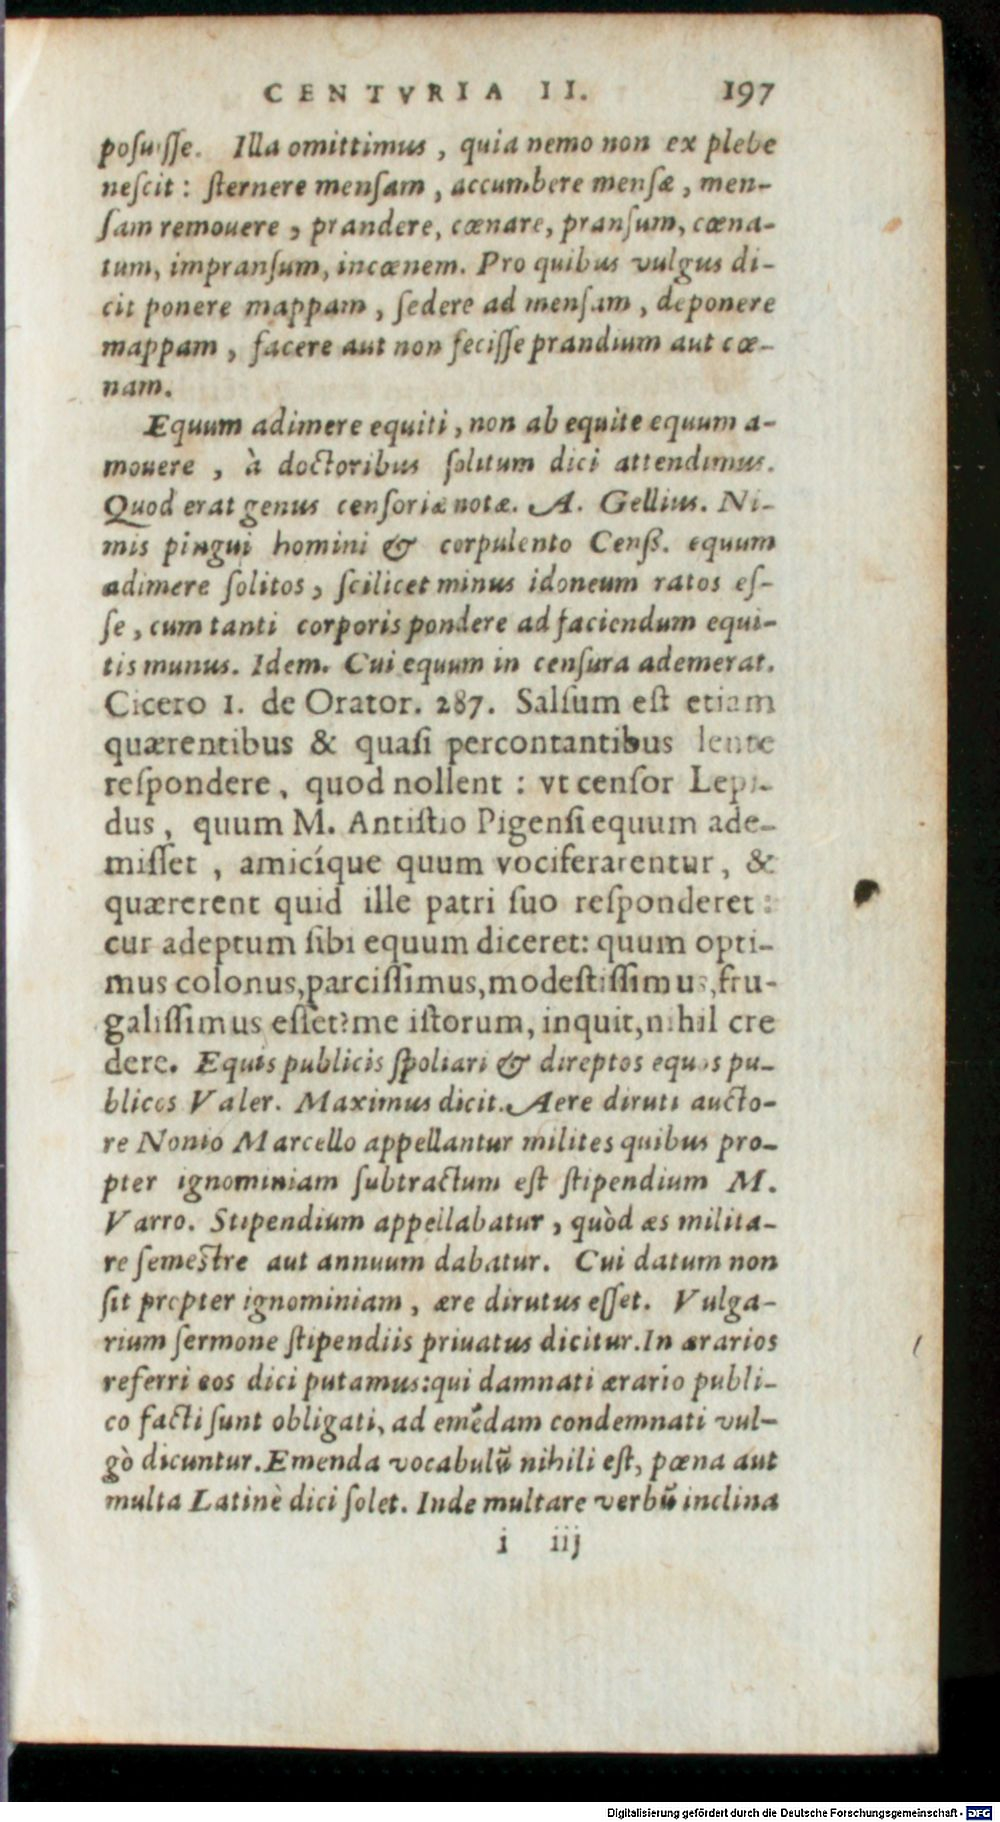 CENTVRIA II. 197
poſuiſſe. Illa omittimus, quia nemo non ex plebe
neſcit: ſternere menſam, accumbere menſæ, men-
ſam remouere, prandere, cœnare, pranſum, cœna-
tum, impranſum, incœnem. Pro quibus vulgus di-
cit ponere mappam, ſedere ad menſam, deponere
mappam, facere aut non feciſſe prandium aut cœ-
nam.
Equum adimere equiti, non ab equite equum a-
mouere, à doctoribus ſolitum dici attendimus.
Quod erat genus cenſoriæ notæ. A. Gellius. Ni-
mis pingui homini & corpulento Cenſſ. equum
adimere ſolitos, ſcilicet minus idoneum ratos eſ-
ſe, cum tanti corporis pondere ad faciendum equi-
tis munus. Idem. Cui equum in cenſura ademerat.
Cicero 1. de Orator. 287. Salſum eſt etiam
quærentibus & quaſi percontantibus lente
reſpondere, quod nollent: vt cenſor Lepi-
dus, quum M. Antiſtio Pigenſi equum ade-
miſſet, amicíque quum vociferarentur, &
quærerent quid ille patri ſuo reſponderet:
cur adeptum ſibi equum diceret: quum opti-
mus colonus, parciſſimus, modeſtiſſimus, fru-
galiſſimus eſſet? me iſtorum, inquit, nihil cre
dere. Equis publicis ſpoliari & direptos equos pu-
blicos Valer. Maximus dicit. Aere diruti aucto-
re Nonio Marcello appellantur milites quibus pro-
pter ignominiam ſubtractum eſt ſtipendium M.
Varro. Stipendium appellabatur, quòd æs milita-
re ſemeſtre aut annuum dabatur. Cui datum non
ſit propter ignominiam, ære dirutus eſſet. Vulga-
rium ſermone ſtipendiis priuatus dicitur. In ærarios
referri eos dici putamus: qui damnati ærario publi-
co facti ſunt obligati, ad emēdam condemnati vul-
gò dicuntur. Emenda vocabulū nihili eſt, pœna aut
multa Latinè dici ſolet. Inde multare verbū inclina
i iij
Digitalisierung gefördert durch die Deutsche Forschungsgemeinschaft - DFG